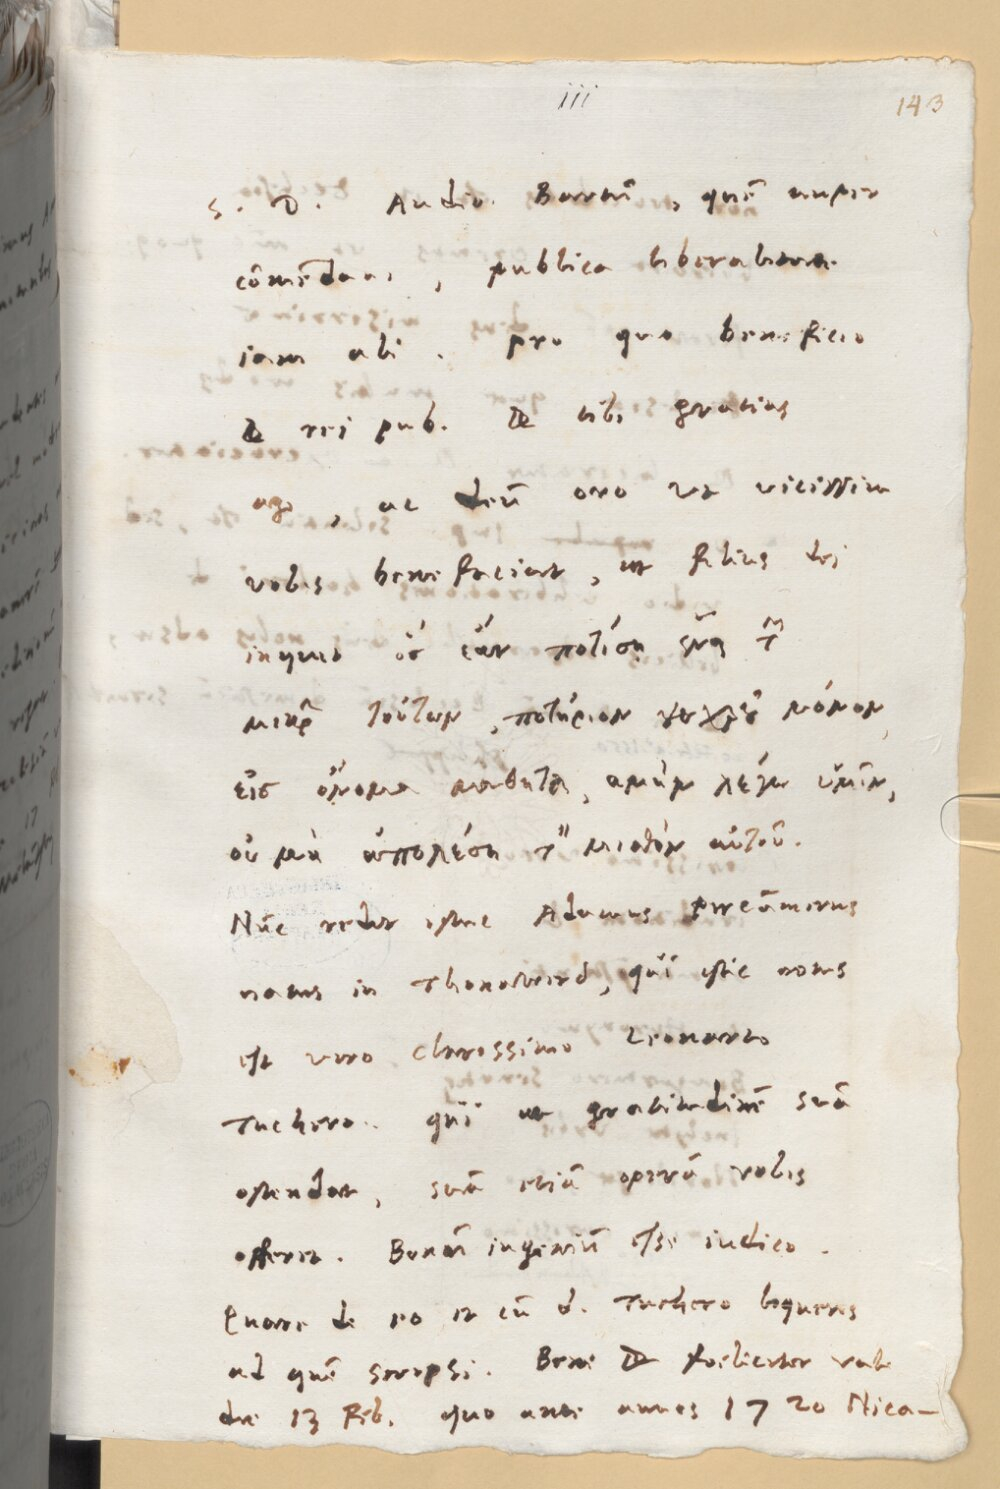 iii
143
S. D. Audio Bavarū, quē nuper
cōmēdavi, publica liberalitate
iam ali. pro quo beneficio
& rei pub. & tibi gratias
ago, ac deū oro ut vicissim
vobis benefaciat, ut filius dei
inquit ὃς ἐὰν ποτίσῃ ἕνα τ͂
μικρ͂ τούτων, ποτήριον ψυχροῦ μόνον,
εἰς ὄνομα μαθητοῦ, ἀμὴν λέγω ὑμῖν,
οὐ μὴ ἀπολέσῃ τ̀ μισθὸν αὑτοῦ.
Nūc redit istuc Adamus
natus in, qui istic notus
est viro clarissimo Leonarto
Tuchero. qui ut gratitudinē suā
ostendat, suā etiā operā vobis
offeret. Bonū ingeniū esse iudico.
Quare de eo et cū d. Tuchero loqueris
ad quē scripsi. Bene & foeliciter vale
die 13 Feb. quo ante annos 1720 Nica-